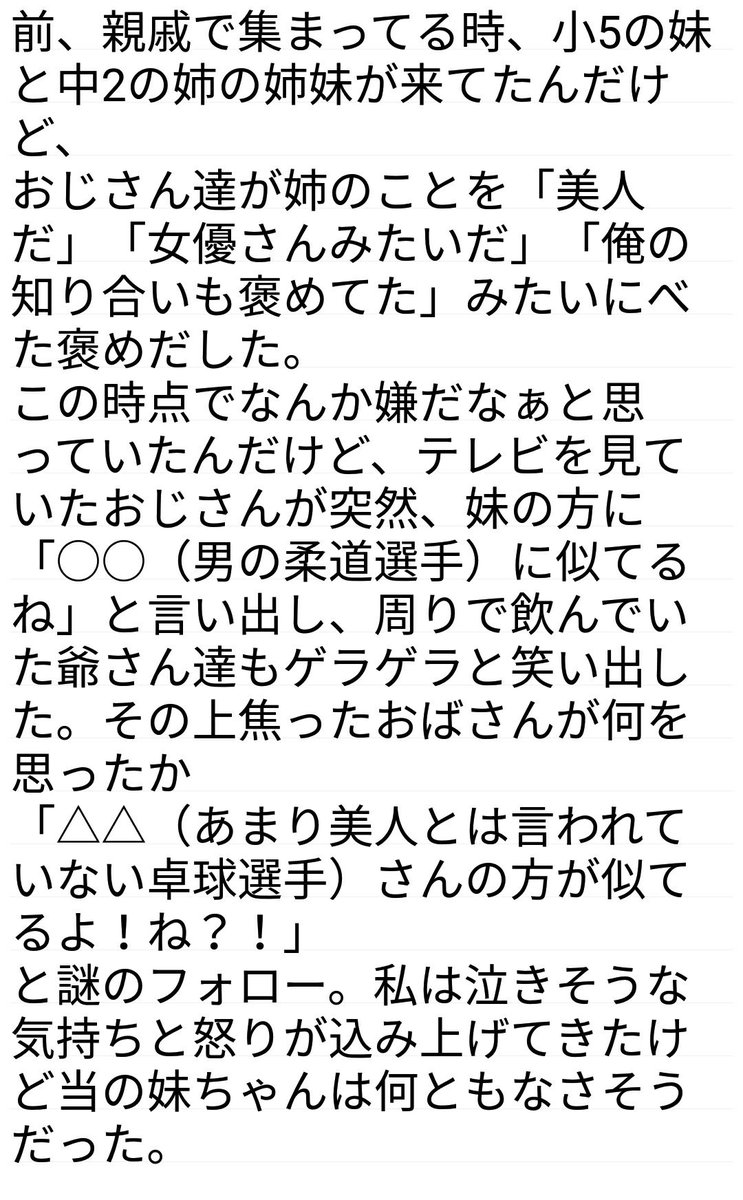 前、親戚で集まってる時、小5の妹
と中2の姉の姉妹が来てたんだけ
ど、
おじさん達が姉のことを「美人
だ」「女優さんみたいだ」「俺の
知り合いも褒めてた」みたいにべ
た褒めだした。
この時点でなんか嫌だなぁと思
っていたんだけど、テレビを見て
いたおじさんが突然、妹の方に
「○○（男の柔道選手）に似てる
ね」と言い出し、周りで飲んでい
た爺さん達もゲラゲラと笑い出し
た。その上焦ったおばさんが何を
思ったか
「△△（あまり美人とは言われて
いない卓球選手）さんの方が似て
るよ！ね？！」
と謎のフォロー。私は泣きそうな
気持ちと怒りが込み上げてきたけ
ど当の妹ちゃんは何ともなさそう
だった。